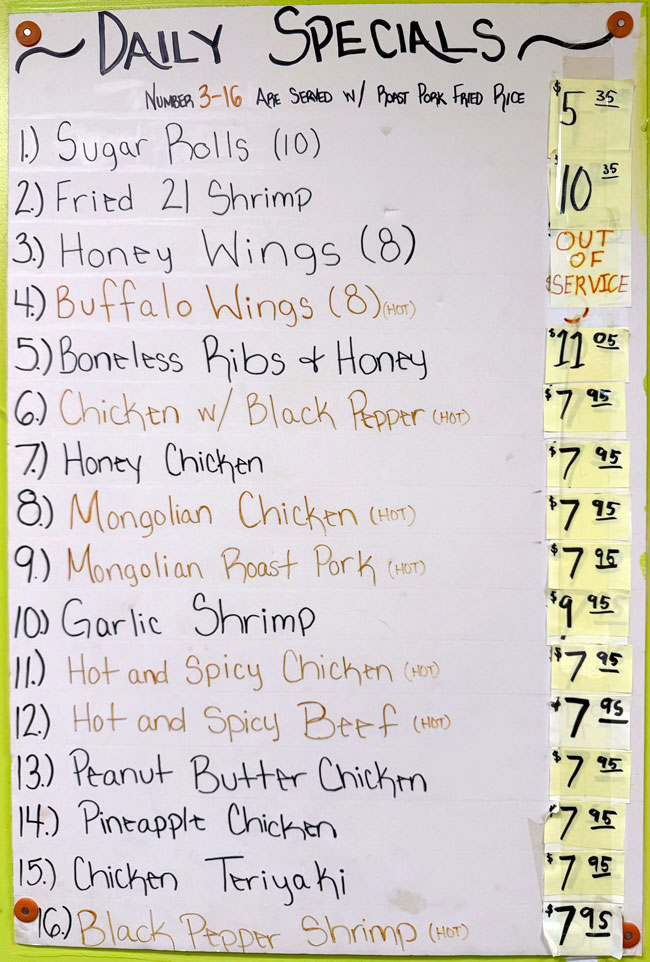 DAILY SPECIALS
NUMBER 3-16 ARE SERVED W/ ROAST PORK FRIED RICE
1.) Sugar Rolls (10) $5 35
2.) Fried 21 Shrimp 10 35
3.) Honey Wings (8) OUT
OF
SERVICE
4.) Buffalo Wings (8) (HOT)
5.) Boneless Ribs & Honey $11 05
6.) Chicken w/ Black Pepper (HOT) $7 95
7.) Honey Chicken $7 95
8.) Mongolian Chicken (HOT) $7 95
9.) Mongolian Roast Pork (HOT) $7 95
10.) Garlic Shrimp $9 95
11.) Hot and Spicy Chicken (HOT) $7 95
12.) Hot and Spicy Beef (HOT) $7 95
13.) Peanut Butter Chicken $7 95
14.) Pineapple Chicken $7 95
15.) Chicken Teriyaki $7 95
16.) Black Pepper Shrimp (HOT) $7 95